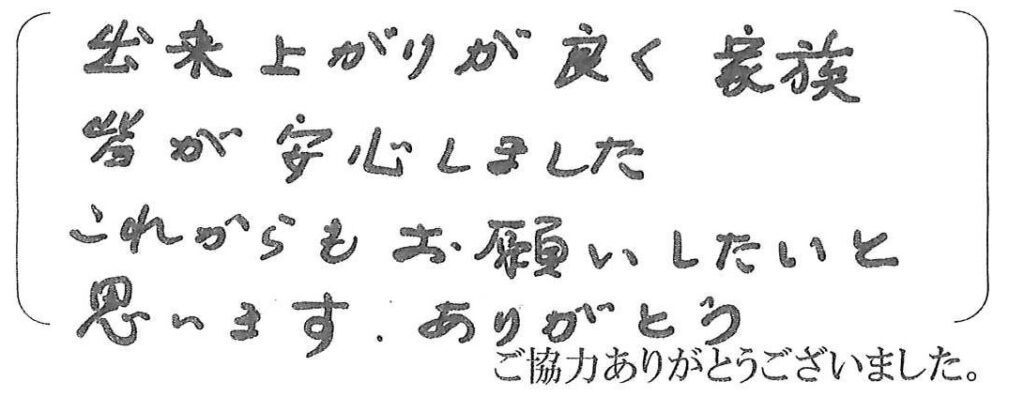 出来上がりが良く 家族
皆が 安心しました
これからも お願いしたいと
思います. ありがとう
ご協力ありがとうございました。